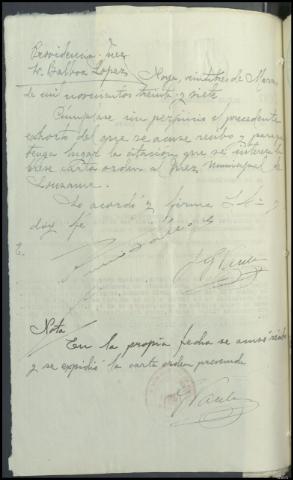 Providencia Juez
Sr. Balboa Lopez Noya, veintitres de Marzo
de mil novecientos treinta y siete
Cúmplase sin perjuicio el precedente
exhorto del que se acuse recibo y para que
tenga lugar la citación que se interesa li-
brese carta orden al Juez municipal de
Lousame.
Lo acordó y firma S.Sª
doy fe
Nota
En la propia fecha se acusó recibo
y se expidió la carta orden prevenida